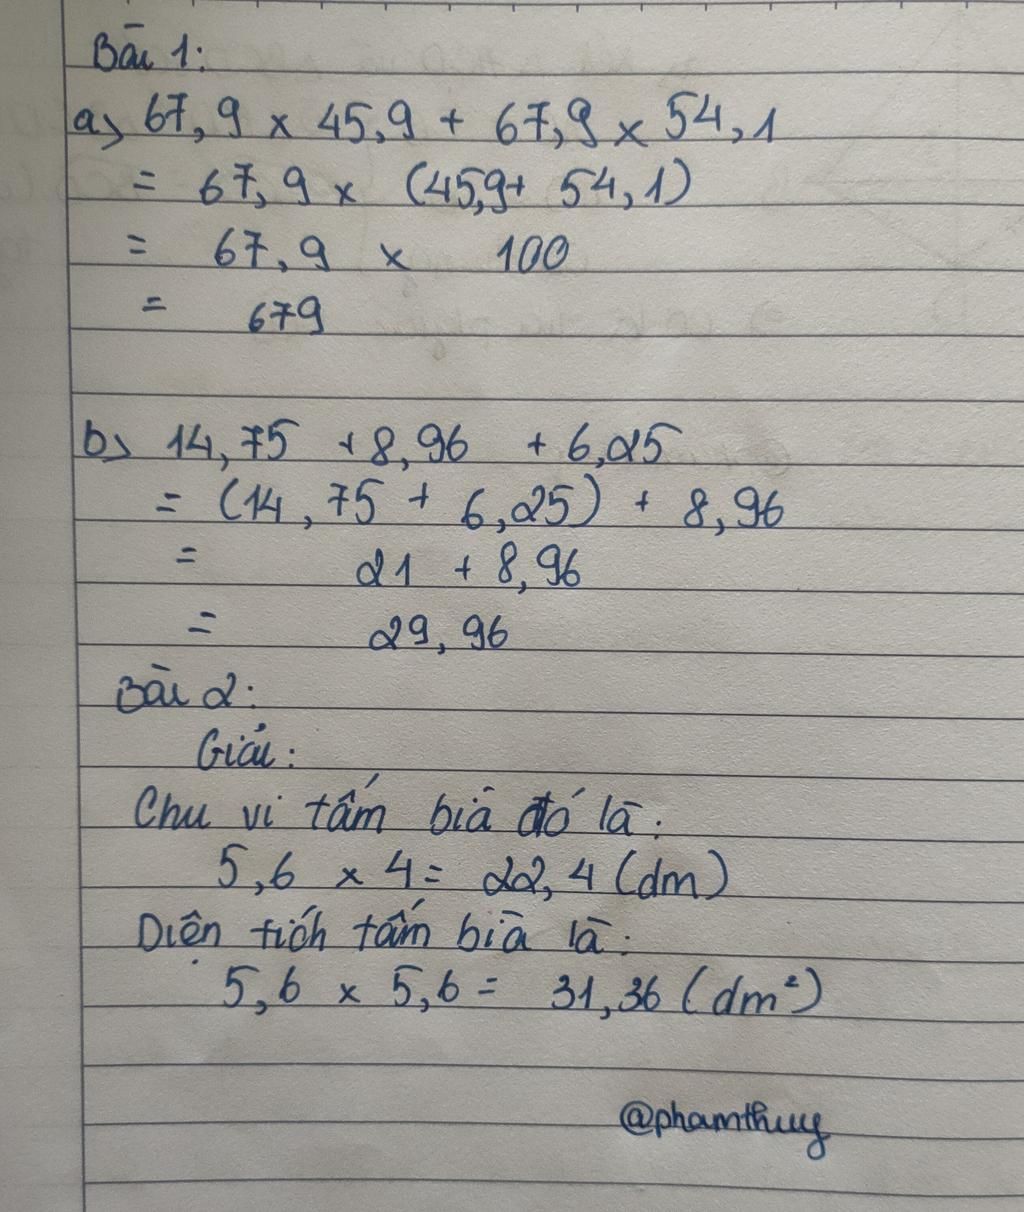 Bài 1:
a) 67,9 x 45,9 + 67,9 x 54,1
= 67,9 x (45,9 + 54,1)
= 67,9 x 100
= 679
b) 14,75 + 8,96 + 6,25
= (14,75 + 6,25) + 8,96
= 21 + 8,96
= 29,96
Bài 2:
Giải:
Chu vi tấm bìa đó là:
5,6 x 4 = 22,4 (dm)
Diện tích tấm bìa là:
5,6 x 5,6 = 31,36 (dm²)
@phamthuy